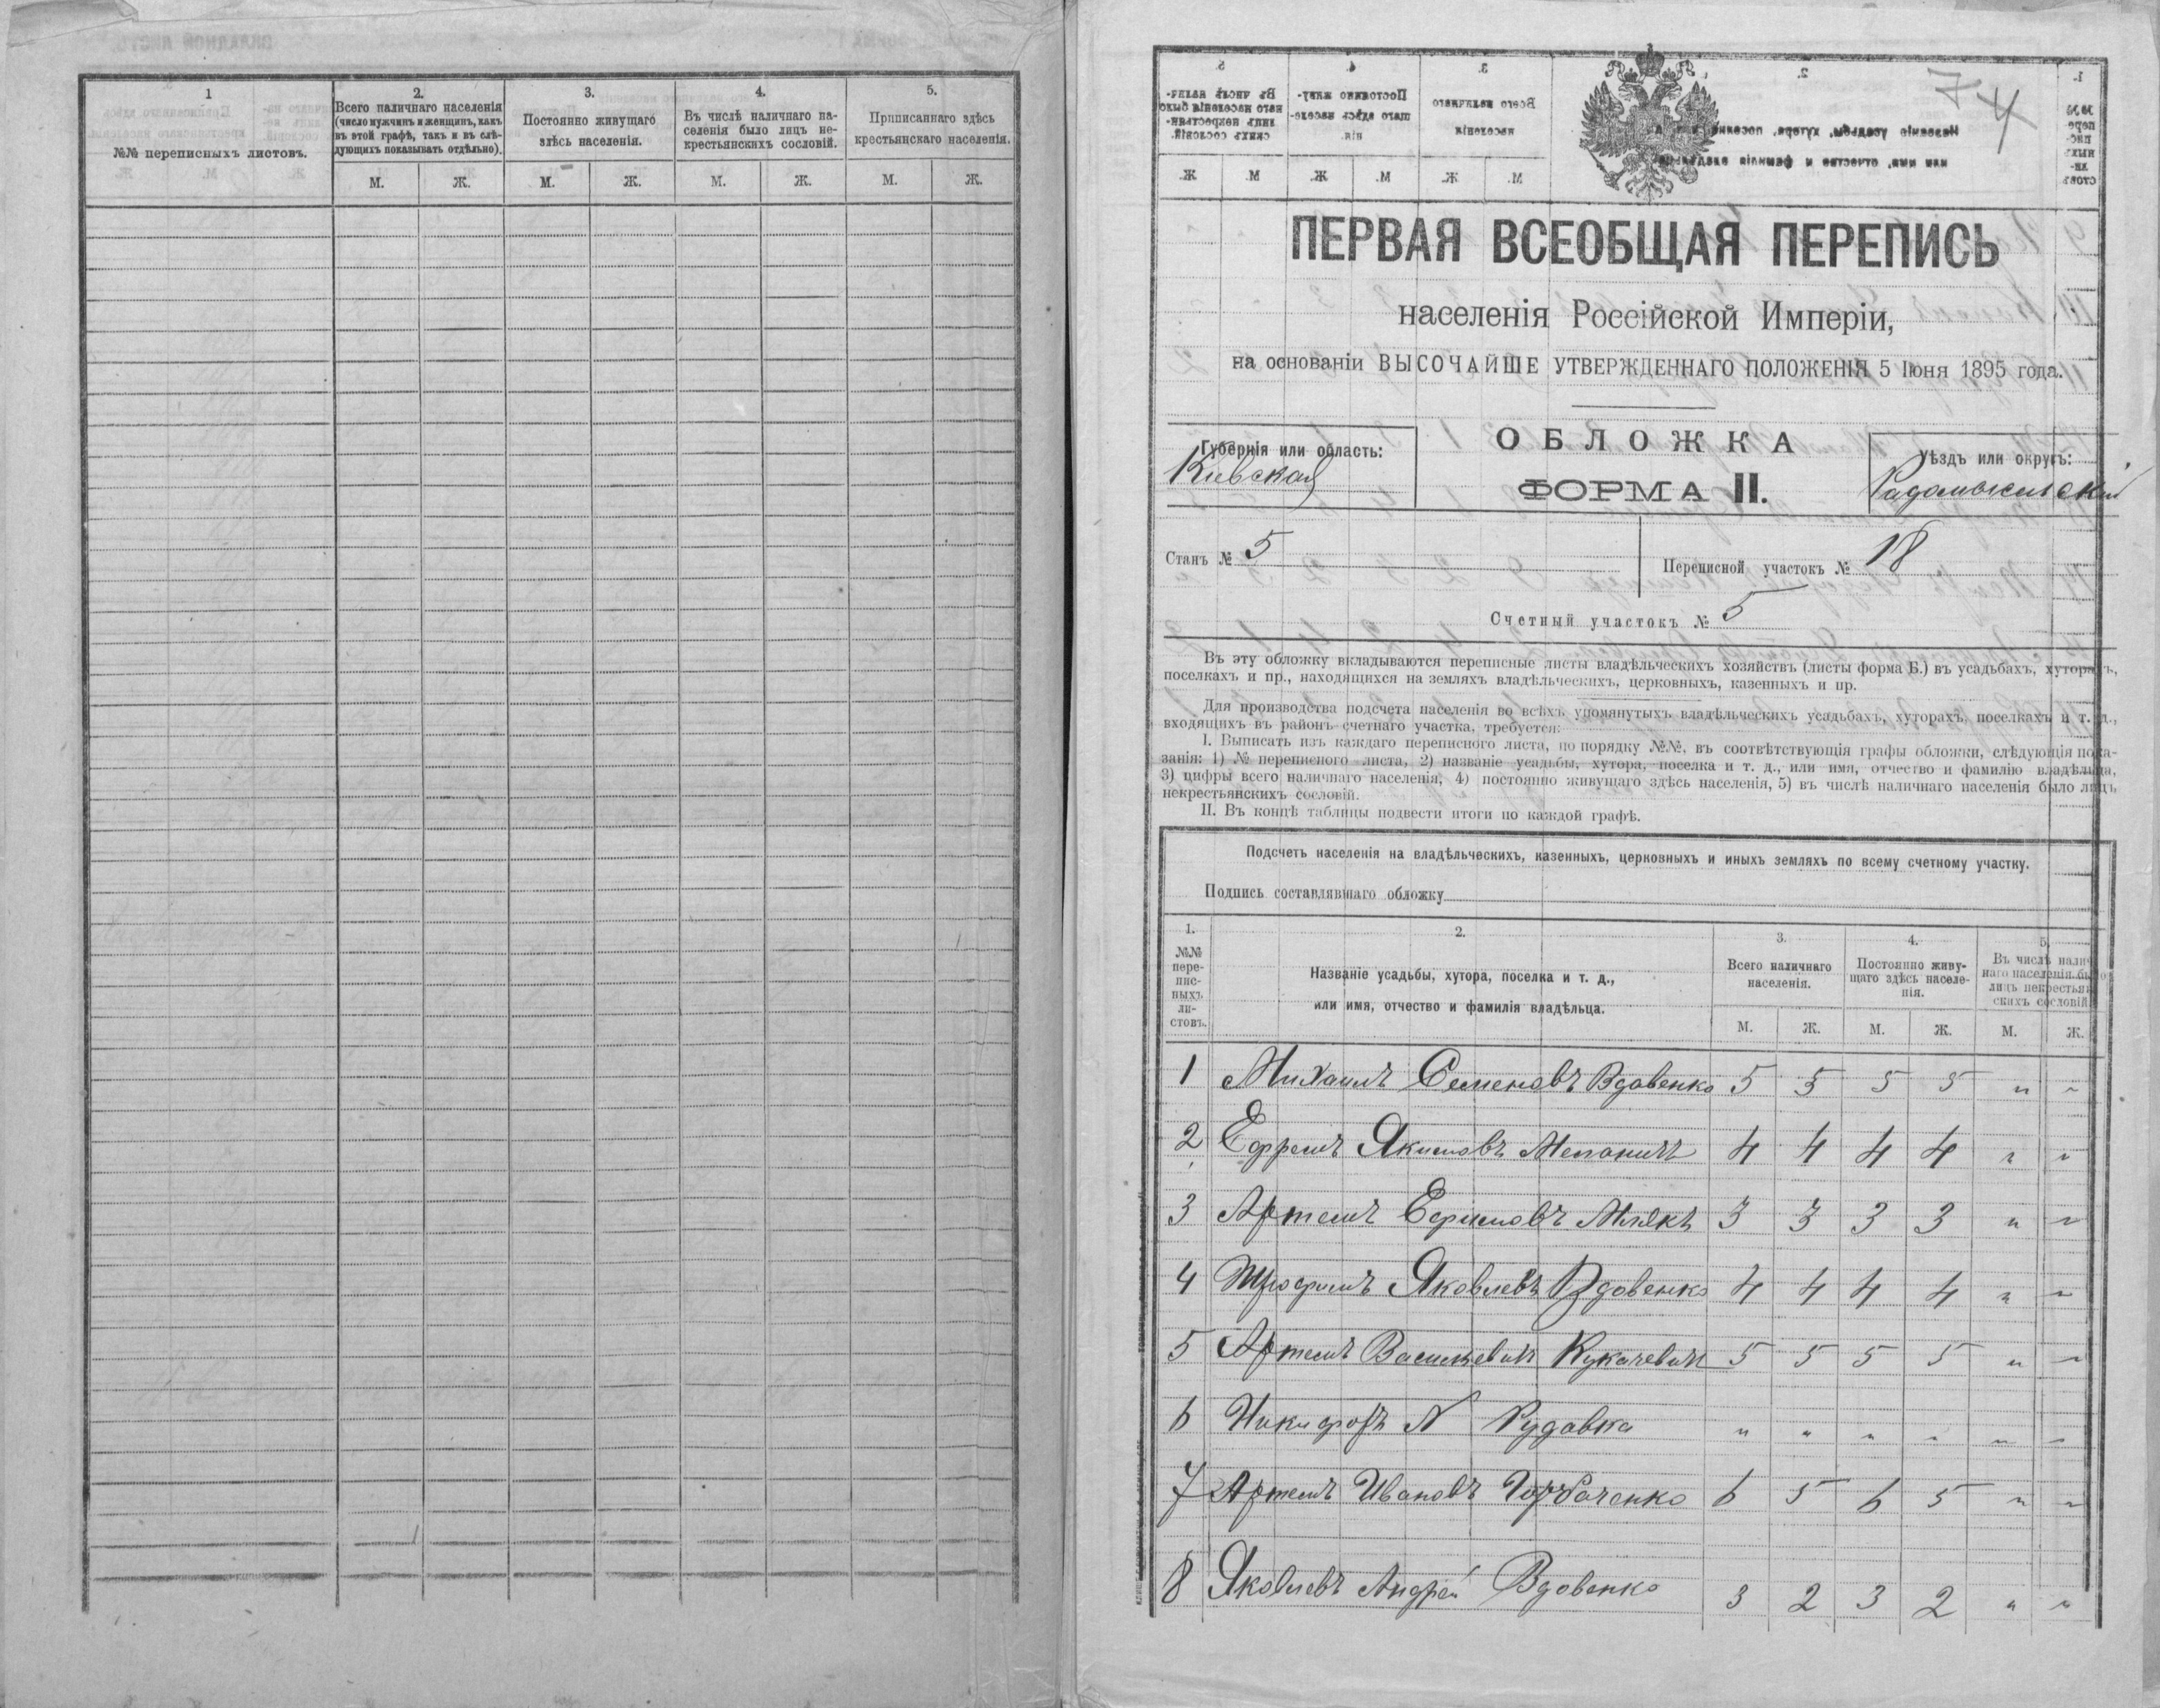 1
№№ переписныхъ листовъ.
2.
Всего наличнаго населенія
(число мужчинъ и женщинъ, какъ
въ этой графѣ, такъ и въ слѣ-
дующихъ показывать отдѣльно).
3.
Постоянно живущаго
здѣсь населенія.
4.
Въ числѣ наличнаго на-
селенія было лицъ не-
крестьянскихъ сословій.
5.
Приписаннаго здѣсь
крестьянскаго населенія.
М. Ж. М. Ж. М. Ж. М. Ж.
74
ПЕРВАЯ ВСЕОБЩАЯ ПЕРЕПИСЬ
населенія Россійской Имперіи,
на основаніи ВЫСОЧАЙШЕ УТВЕРЖДЕННАГО ПОЛОЖЕНІЯ 5 Іюня 1895 года.
Губернія или область:
Кіевская
ОБЛОЖКА
ФОРМА II.
Уѣздъ или округъ:
Радомысльскій
Станъ № 5
Переписной участокъ № 18
Счетный участокъ № 5
Въ эту обложку вкладываются переписные листы владѣльческихъ хозяйствъ (листы форма Б.) въ усадьбахъ, хуторахъ,
поселкахъ и пр., находящихся на земляхъ владѣльческихъ, церковныхъ, казенныхъ и пр.
Для производства подсчета населенія во всѣхъ упомянутыхъ владѣльческихъ усадьбахъ, хуторахъ, поселкахъ и т. д.,
входящихъ въ районъ счетнаго участка, требуется:
I. Выписать изъ каждаго переписного листа, по порядку №№, въ соотвѣтствующія графы обложки, слѣдующія пока-
занія: 1) № переписного листа, 2) названіе усадьбы, хутора, поселка и т. д., или имя, отчество и фамилію владѣльца,
3) цифры всего наличнаго населенія, 4) постоянно живущаго здѣсь населенія, 5) въ числѣ наличнаго населенія было лицъ
некрестьянскихъ сословій.
II. Въ концѣ таблицы подвести итоги по каждой графѣ.
Подсчетъ населенія на владѣльческихъ, казенныхъ, церковныхъ и иныхъ земляхъ по всему счетному участку.
Подпись составлявшаго обложку
1.
№№
пере-
пис-
ныхъ
ли-
стовъ.
2.
Названіе усадьбы, хутора, поселка и т. д.,
или имя, отчество и фамилія владѣльца.
3.
Всего наличнаго
населенія.
4.
Постоянно живу-
щаго здѣсь населе-
нія.
5.
Въ числѣ налич-
наго населенія было
лицъ некрестьян-
скихъ сословій.
М. Ж. М. Ж. М. Ж.
1 Михаилъ Семеновъ Вдовенко 5 5 5 5 " "
2 Ефремъ Якимовъ 4 4 4 4 " "
3 Артемъ Ефимовъ 3 3 3 3 " "
4 Трофимъ Яковлевъ Вдовенко 4 4 4 4 " "
5 Артемъ Васильевичъ Кукачевичъ 5 5 5 5 " "
6 Никифоръ N Рудавка " " " " " "
7 Артемъ Ивановъ Горбаченко 6 5 6 5 " "
8 Яковлевъ Андрей Вдовенко 3 2 3 2 " "